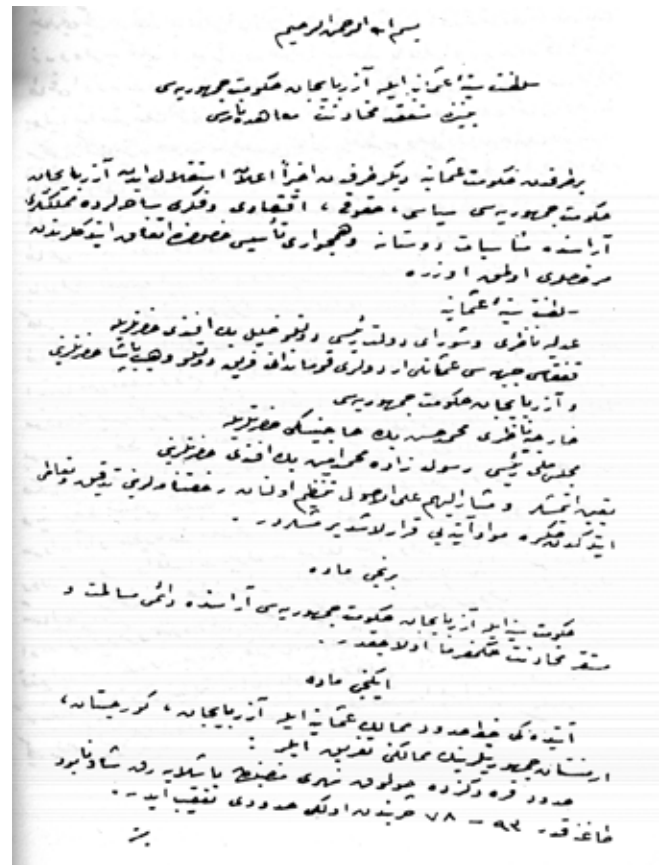 بسم الله الرحمن الرحيم
سلطنت سنيهٔ عثمانيه ايله آزربايجان حكومت جمهوريه‌سى
بيننده منعقد مخادنت معاهده‌نامه‌سى
بر طرفدن حكومت عثمانيه ديگر طرفدن اخيراً اعلان استقلال ايدن آزربايجان
حكومت جمهوريه‌سى سياسى، حقوقى، اقتصادى وفكرى ساحه‌لرده مملكتلرى
آراسنده مناسبات دوستانه وهمجوارى تأسيسى خصوصنده اتفاق ايتدكلرندن
مرخصلرى اولمق اوزره
سلطنت سنيهٔ عثمانيه
عدليه ناظرى وشوراى دولت رئيسى دولتلو خليل بك افندى حضرتلريله
قفقاس جبهه‌سى عثمانلى اردولرى قوماندانى فريق دولتلو وهيب پاشا حضرتلرينى
و آزربايجان حكومت جمهوريه‌سى
خارجيه ناظرى محمد حسن بك حاجينسكى حضرتلريله
مجلس ملى رئيسى رسول زاده محمد امين بك افندى حضرتلرينى
تعيين ايتمشلر ومشاراليهم على الاصول تنظيم اولنان رخصتنامه‌لرينى تدقيق وتعاطى
ايتدكدن صكره مواد آتيه‌يى قرارلاشديرمشلردر.
برنجى ماده
حكومت سنيه ايله آزربايجان حكومت جمهوريه‌سى آراسنده دائمى مسالمت و
مستقر مخادنت حكمفرما اولاجقدر.
ايكنجى ماده
آتيده‌كى خط حدود ممالك عثمانيه ايله آزربايجان، گورجستان،
ارمنستان جمهوريتلرينك ممالكنى تفريق ايلر:
حدود قره دكزده چولوق نهرى منصبندن باشلايه‌رق شاونابود
طاغنه قدر ٩٣ – ٧٨ حربندن اولكى حدودى تعقيب ايدر.